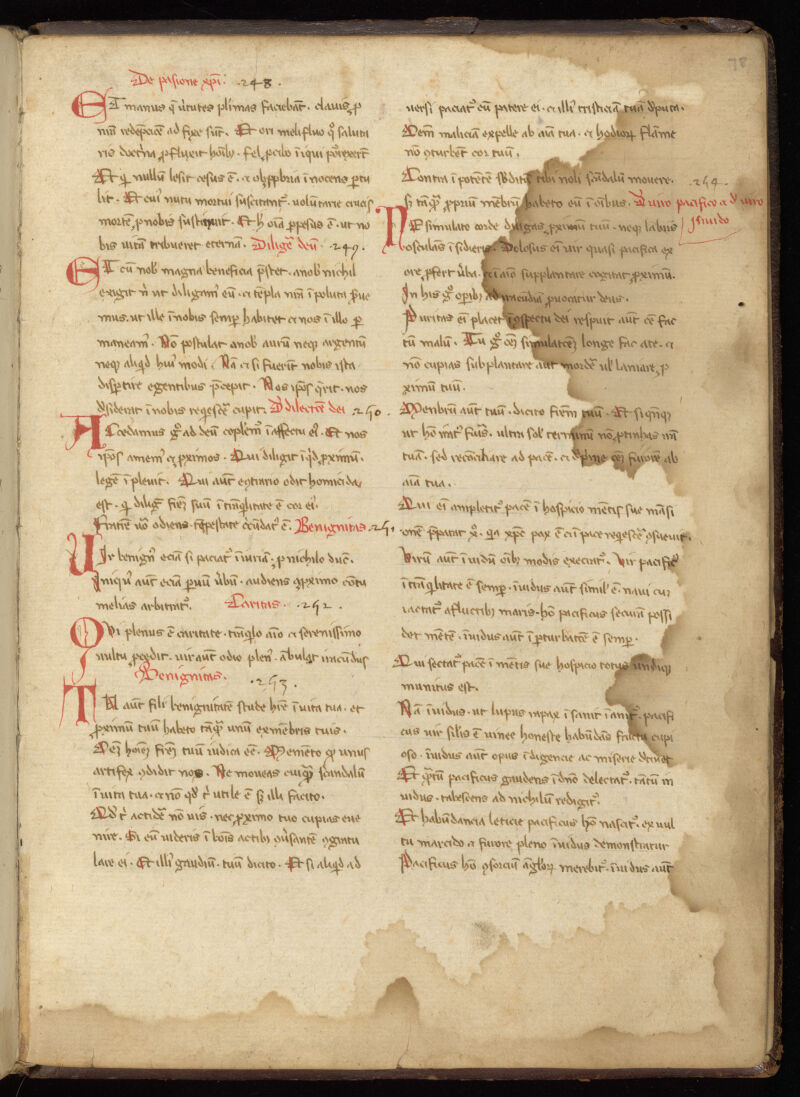 De pasione xp̄i. .248.
Et manus q̄ v̄tutes plimas faciebāt. clauis ꝑ
ad fixe sūt. Et ori melifluo qͦ saluta
ris doct̄na ꝓfluxit hoīb᷒. fel ꝓ cibo īiqui porrexerūt
Et qͥ nullum lesit cesus ē. et obꝓbria īnocens ꝑtu
lit. Et cuī nutu mortui suscitant᷑. voluntarie crucis
mortē ꝓ nobis sustinuit. Et h̄ oīa ꝑpesus ē. ut no
bis vitā tribueret eternā. Dilig̅e deū. .249.
Et cū nob̄ magna beneficia p̄stet. a nob̄ nichil
exigit n̄ ut diligam᷒ eū. et tēpla n̄ra īpoluta
mus. ut ille ī nobis semꝑ habitet et nos ī illo ꝑ
maneam᷒. Nō postulat a nob̄ aurū neqꝫ argentū
neqꝫ aliqd huī modi. Nā et si fuerīt nobis ista
disꝑtire egentibus p̄cepit. Nos ip̄os q̄rit. nos
desiderat ī nobis reqescere cupit. De dilectōe dei .250.
Accedamus gͦ ad deū ī affectu eī. Et nos
ip̄os amem᷒ et ꝓximos. Qui diligit ꝓximū.
legē īpleuit. Qui aūt econtrario odit homicida
est. qͥ diligit frēm suū ī tnq̄litate ē cor eī.
Fratrē v̄o odiens. tēpestate ē. Benignitas. .251.
Vir benign᷒ eciā si paciat᷑ īiuriā. ꝓ nichilo ducit.
Iniqu᷒ aūt eciā ꝑuū v̄bū. audiens a ꝓximo contu
melias arbitrat᷑. Caritas. .252.
Qui plenus ē caritate. tnq̄lo aīo et serenissimo
vultu ꝓcedit. vir aūt odio plen᷒. ābulat iracūdus
Benignitas. .253.
Tu aūt fili benignitatē stude h̄re ī vita tua. et
ꝓximū tuū habeto tāqͣ unū ex mēbris tuis.
Oēm hoīem frēm tuū iudica eē. Memēto qꝫ unus
artifex ꝯdidit nos. Ne moueas cuiqͣ scandalū
ī vita tua. et nō qd tͥ utile ē illi facito.
Qd tͥ accidere nō vis. nec ꝓximo tuo cupias eue
nire. Si eū videris ī bonis actib᷒ ꝯuersantē ꝯgratu
lare ei. Et illi᷒ gaudiū. tuū dicito. Et si aliqd ad
uersi paciat᷑ eū patere ei. et illi᷒ tristiciā tuā deputa.
Oēm maliciā expelle ab aīa tua. et hodioꝝ flāme
nō ꝯturbent cor tuū.
Contra īpotētē subditū tibi noli scādalū mouere.
s̄ tāqͣ ꝓpriū mēbrū habeto eū ī oībus. De uiro pacifico et de uiro .254.
īuido
Nō simulato corde diligas ꝓximū tuū. neqꝫ labiis
osculans īsidieris. Dolosus eī vir quasi pacifica ex
ore ꝓfert v̄ba. et ī aīo supplantare cogitat ꝓximū.
In his gͦ oꝑib᷒ ad iracūdiā prouocatur deus.
Puritas eī placet ī ꝯspectu dei respuit aūt oē fac
tū malū. Tu gͦ oēm simulacōem longe fac a te. et
nō cupias subplantare aut mordere uel laniare ꝓ
ximū tuū.
Menbrū aūt tuū. dicito frēm tuū. Et si
ut hō irat᷒ fueris. ultra sol᷒ terminū nō ꝓtrahas irā
tuā. sed reconciliare ad pacē. et deprime oēm furorē ab
aīa tua.
Qui eī amplectit᷑ pacē ī hospicio mētis sue māsi
onē p̄parat xͦ. qͥa xp̄c pax ē et ī pace reqescere ꝯsueuit.
Virū aūt īuidū oīb᷒ modis execrat᷑. Vir pacific᷒
ī tnq̄litate ē semꝑ. īuidus aūt simil᷒ ē. naui que
iactat᷑ a fluctib᷒ maris. hō pacificus securā possi
det mētē. īuidus aūt ī ꝑturbatōe ē semꝑ.
Qui sectat᷑ pacē ī mētis sue hospicio totus undiqꝫ
munitus est.
Nā īuidus. ut lupus rapax īsanit ī pacifi
cus uir similis ē vinee honeste habūdās fructu copi
oso. īuidus aūt opus īdigencie ac miserie
Et q̄tū pacificus gaudens ī dn̄o delectat᷑. tātū in
uidus. tabescens ad nichilū redigit᷑.
Ex habūdancia leticie pacificus hō nascit᷑. ex uul
tu marcido et furore pleno īuidus demonstratur
Pacificus hō ꝯsorciū angl̄oꝝ merebit᷑. īuidus aūt